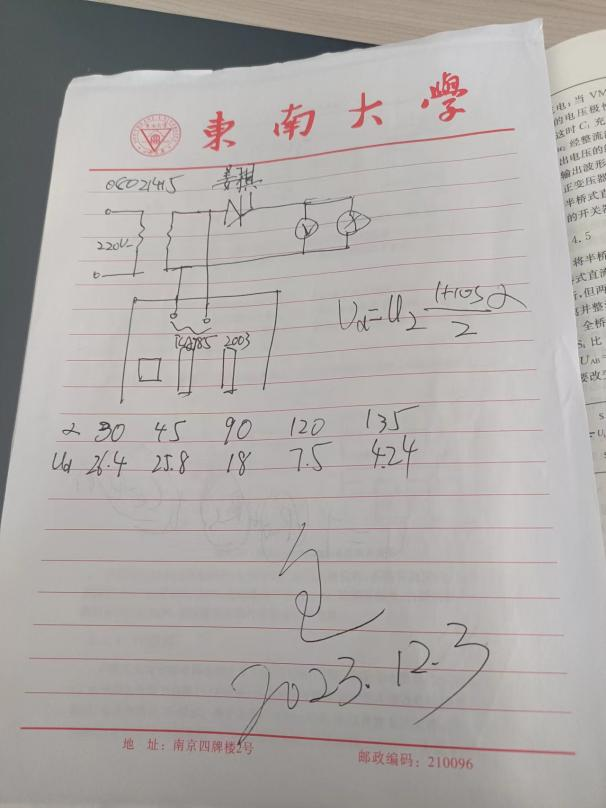 東南大學
06021415 姜骐
220V~
V
TCA785 2003
Ud=U2 (1+cosα)/2
α 30 45 90 120 135
Ud 26.4 25.8 18 7.5 4.24
2023.12.3
地 址：南京四牌楼2号
邮政编码：210096
电；当 VM
的电压极性
这时 C₁ 充
经整流
出电压的
输出波形
正变压器
半桥式直
的开关器
4.5
将半桥
式直流
，但两
离并整
全桥
S₁ 比
U_AB=
要改变